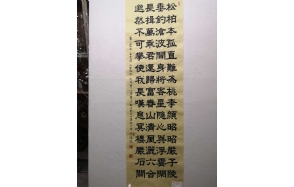 松柏本孤直難為桃李顏昭昭嚴子陵
垂釣滄波間身將客星隱心與浮雲閒
長揖萬乘君還歸富春山清風灑六合
邈然不可攀使我長嘆息冥棲巖石間